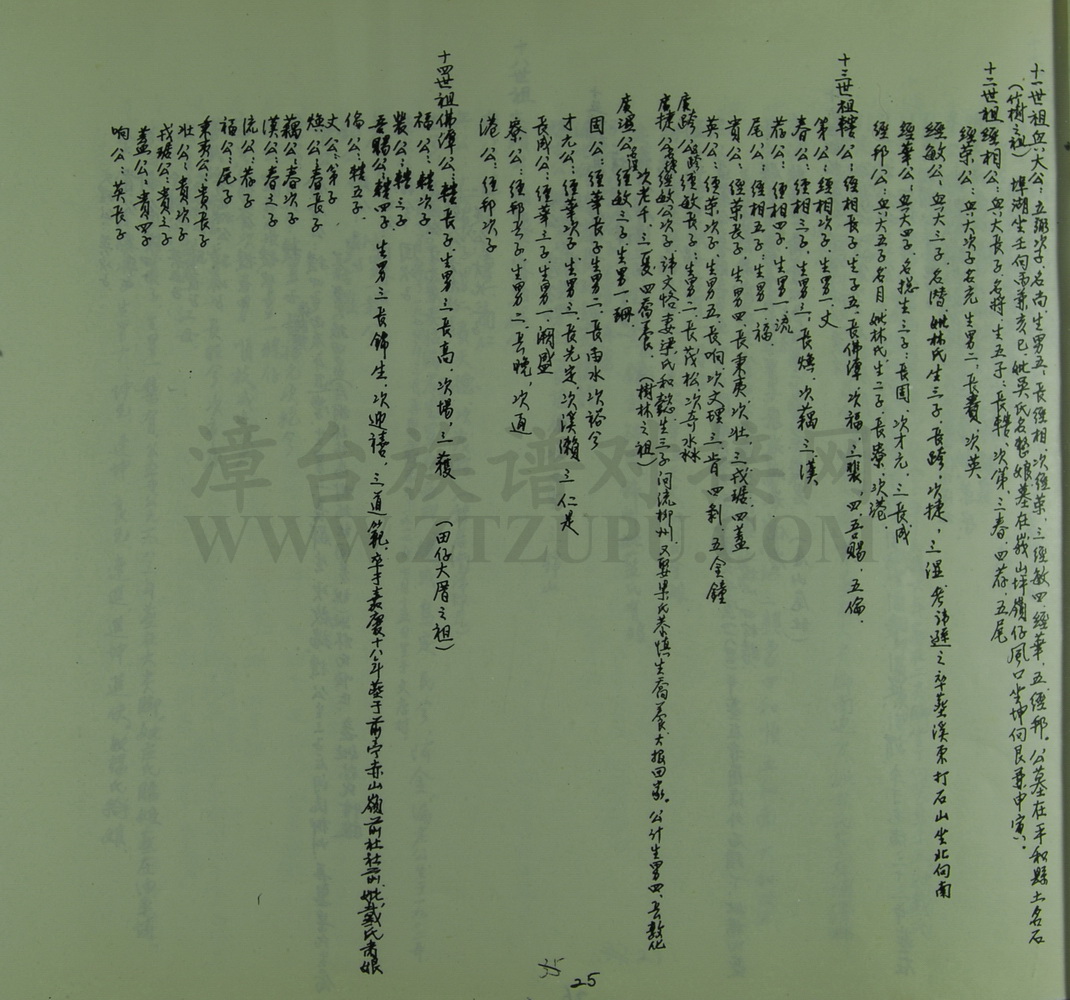 十一世祖典大公：五弼次子，名尚生男五、長經相、次經榮、三經敏、四經華、五經邦。公墓在平和縣土名石
（竹樹之祖）埤湖坐壬向丙兼亥巳，妣吳氏名 娘墓在 山坪嶺仔風口坐坤向艮兼申寅。
十二世祖經相公：典大長子，名蔣，生五子：長轄、次第、三春、四荐、五尾
經榮公：典大次子名充 生男二、長貴、次英
經敏公：典大三子、名潛 妣林氏生三子、長跨、次捷、三湿、考諱遜之卒葬溪東打石山坐北向南
經華公：典大四子、名 生三子：長國、次才元、三長成
經邦公：典大五子名月 妣林氏、生二子、長寮、次港、
十三世祖轄公：經相長子、生子五、長佛潭、次福、三裴、四、吾賜、五倫、
第公：經相次子、生男一、丈
春公：經相三子、生男三、長煥、次藕、三漢
荐公：經相四子、生男一、流
尾公：經相五子：生男一、福、
貴公：經榮長子、生男四、長秉夷、次壯、三戎琚、四蓋
英公：經榮次子、生男五、長响、次文理、三肯、四剩、五金鐘
廣跨公 經敏長子：生男二、長茂松次奇水淋
廣捷公 經敏公次子、諱文恪妻梁氏和懿生三子同流柳州、又娶吳氏恭慎生喬養大振回家。公計生男四、長敦化
次老千、三夏、四喬養、（樹林之祖）
廣湿公 經敏三子、生男一、珊、
國公：經華長子生男二、長雨水次裕今
才元公：經華次子、生男三、長光定、次溪瀨、三仁是
長成公：經華三子、生男一、潮盛
寮公：經邦長子、生男二、長晚、次通
港公：經邦次子
十四世祖佛潭公：轄長子、生男三、長高、次場、三獲（田仔大厝之祖）
福公：轄次子、
裴公：轄三子
吾賜公：轄四子、生男三、長錦生、次迎禧、三道範、卒于嘉慶十八年葬于前亭赤山嶺前杜社前、妣戴氏 娘
倫公：轄五子
丈公：第子
煥公：春長子
藕公：春次子
漢公：春之子
流公：荐子
福公：尾子
秉夷公：貴長子
壯公：貴次子
戎琚公：貴之子
蓋公：貴四子
响公：英長子
漳台族谱对接网
WWW.ZTZUPU.COM
35
25